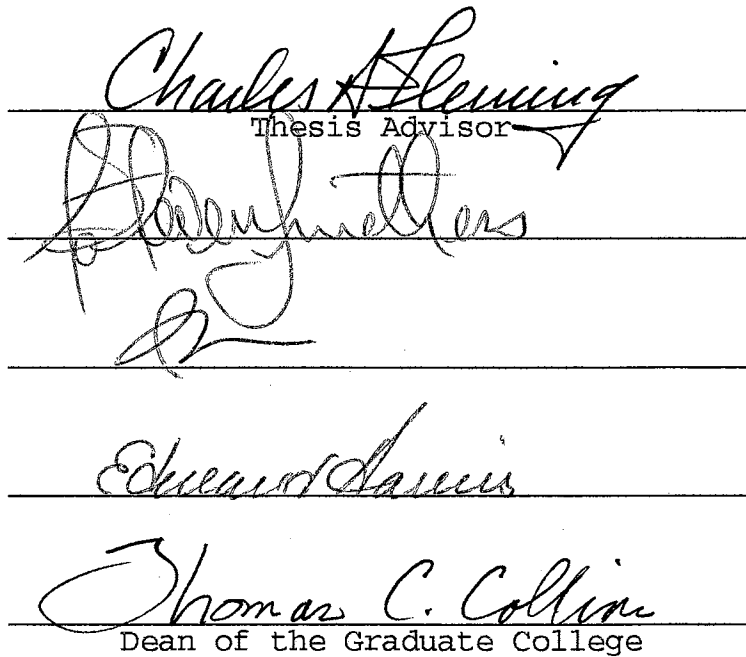 Charles A Fleming
Thesis Advisor
Edward Harris
Thomas C. Collins
Dean of the Graduate College